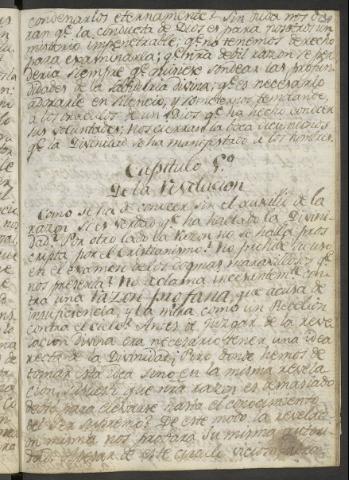 condenarlos eternamente? Sin duda nos dirán qe. la conducta de Dios es para nosotros un
misterio impenetrable; qe. no tenemos derecho
para examinarla; qe. ntra debil razon se perdería siempre qe. quisiere sondear las profundidades de la sabiduria divina; qe. es necesario
adorarle en silencio, y someternos temblando
a los oraculos de un Dios qe. ha hecho conocer
sus voluntades; nos cierran la boca diciendonos
qe. la Divinidad se ha manifestado a los hombres.
Capitulo 5º
De la Revelacion
Como se ha de conocer sin el auxilio de la
razon si es verdad qe. ha hablado la Divinidad? Por otro lado la Razon no se halla proscripta por el Cristianismo? No prohibe su uso
en el examen de los dogmas maravillosos qe.
nos presenta? No exclama incesantemte. contra una razon profana, que acusa de
insuficiencia, y la mira como un rebelion
contra el cielo? Antes de juzgar de la revelacion divina era necesario tener una idea
recta de la Divinidad; Pero donde hemos de
tomar esta idea sino en la misma revelacion, puesto que ntra razon es demasiado
debil para elevarse hasta el conocimiento
del Ser supremo? De este modo la revelacion misma nos probará su misma autoridad. A pesar de este circulo vicioso